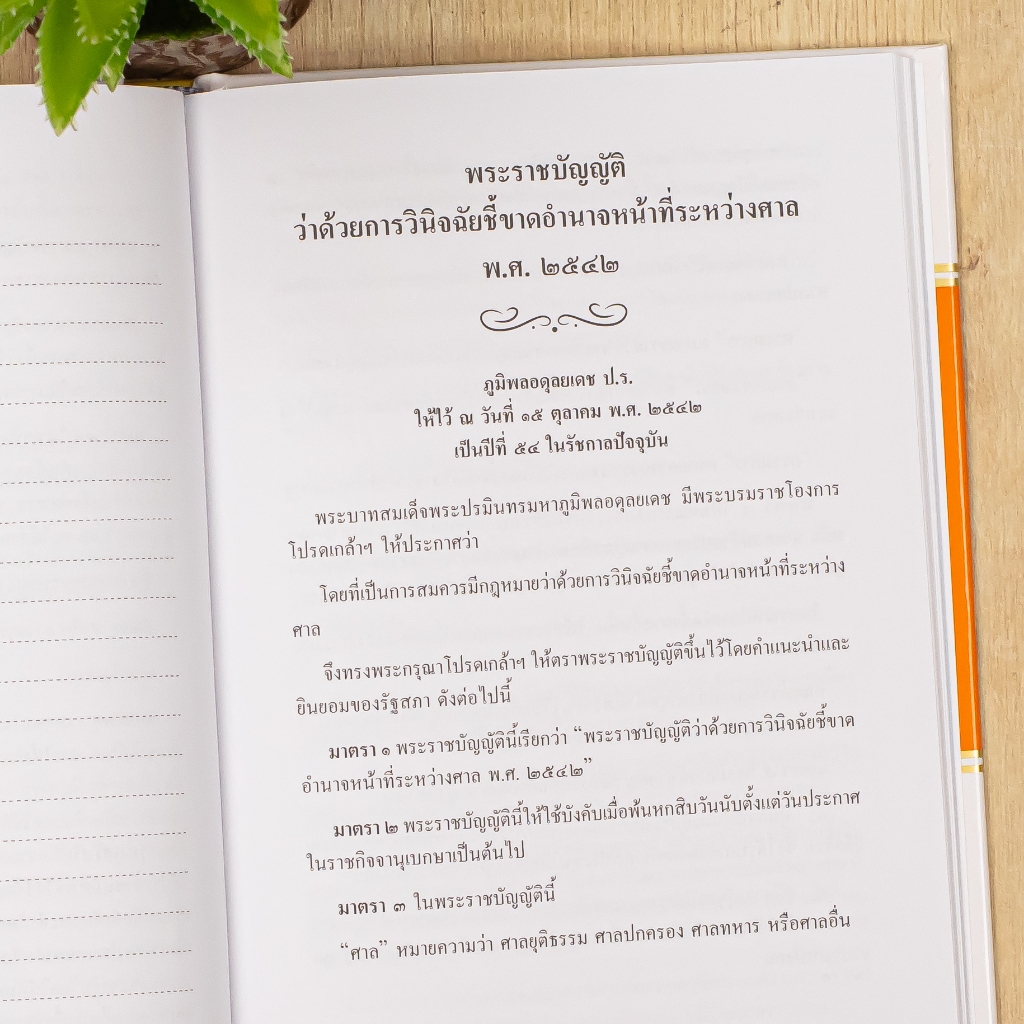 พระราชบัญญัติ
ว่าด้วยการวินิจฉัยชี้ขาดอำนาจหน้าที่ระหว่างศาล
พ.ศ. ๒๕๔๒
ภูมิพลอดุลยเดช ป.ร.
ให้ไว้ ณ วันที่ ๑๕ ตุลาคม พ.ศ. ๒๕๔๒
เป็นปีที่ ๕๔ ในรัชกาลปัจจุบัน
พระบาทสมเด็จพระปรมินทรมหาภูมิพลอดุลยเดช มีพระบรมราชโองการ
โปรดเกล้าฯ ให้ประกาศว่า
โดยที่เป็นการสมควรมีกฎหมายว่าด้วยการวินิจฉัยชี้ขาดอำนาจหน้าที่ระหว่าง
ศาล
จึงทรงพระกรุณาโปรดเกล้าฯ ให้ตราพระราชบัญญัติขึ้นไว้โดยคำแนะนำและ
ยินยอมของรัฐสภา ดังต่อไปนี้
มาตรา ๑ พระราชบัญญัตินี้เรียกว่า “พระราชบัญญัติว่าด้วยการวินิจฉัยชี้ขาด
อำนาจหน้าที่ระหว่างศาล พ.ศ. ๒๕๔๒”
มาตรา ๒ พระราชบัญญัตินี้ให้ใช้บังคับเมื่อพ้นหกสิบวันนับตั้งแต่วันประกาศ
ในราชกิจจานุเบกษาเป็นต้นไป
มาตรา ๓ ในพระราชบัญญัตินี้
“ศาล” หมายความว่า ศาลยุติธรรม ศาลปกครอง ศาลทหาร หรือศาลอื่น